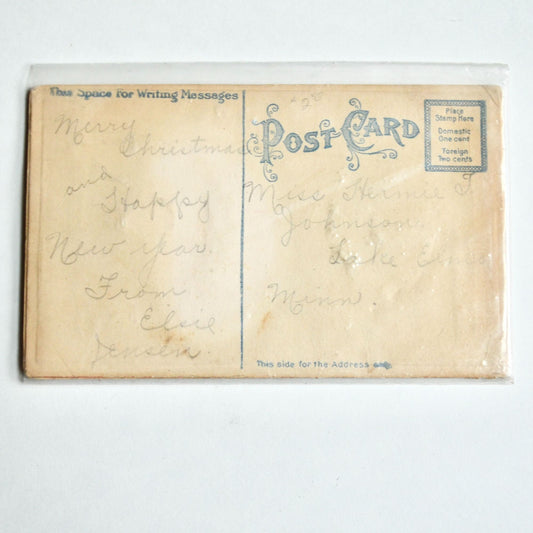 This Space for Writing Messages
Merry
Christmas
and
Happy
New year.
From
Elsie
Jensen.
POST CARD
Place
Stamp Here
Domestic
One cent
Foreign
Two cents
Miss Hermie J
Johnson.
Lake Elmo
Minn.
This side for the Address only